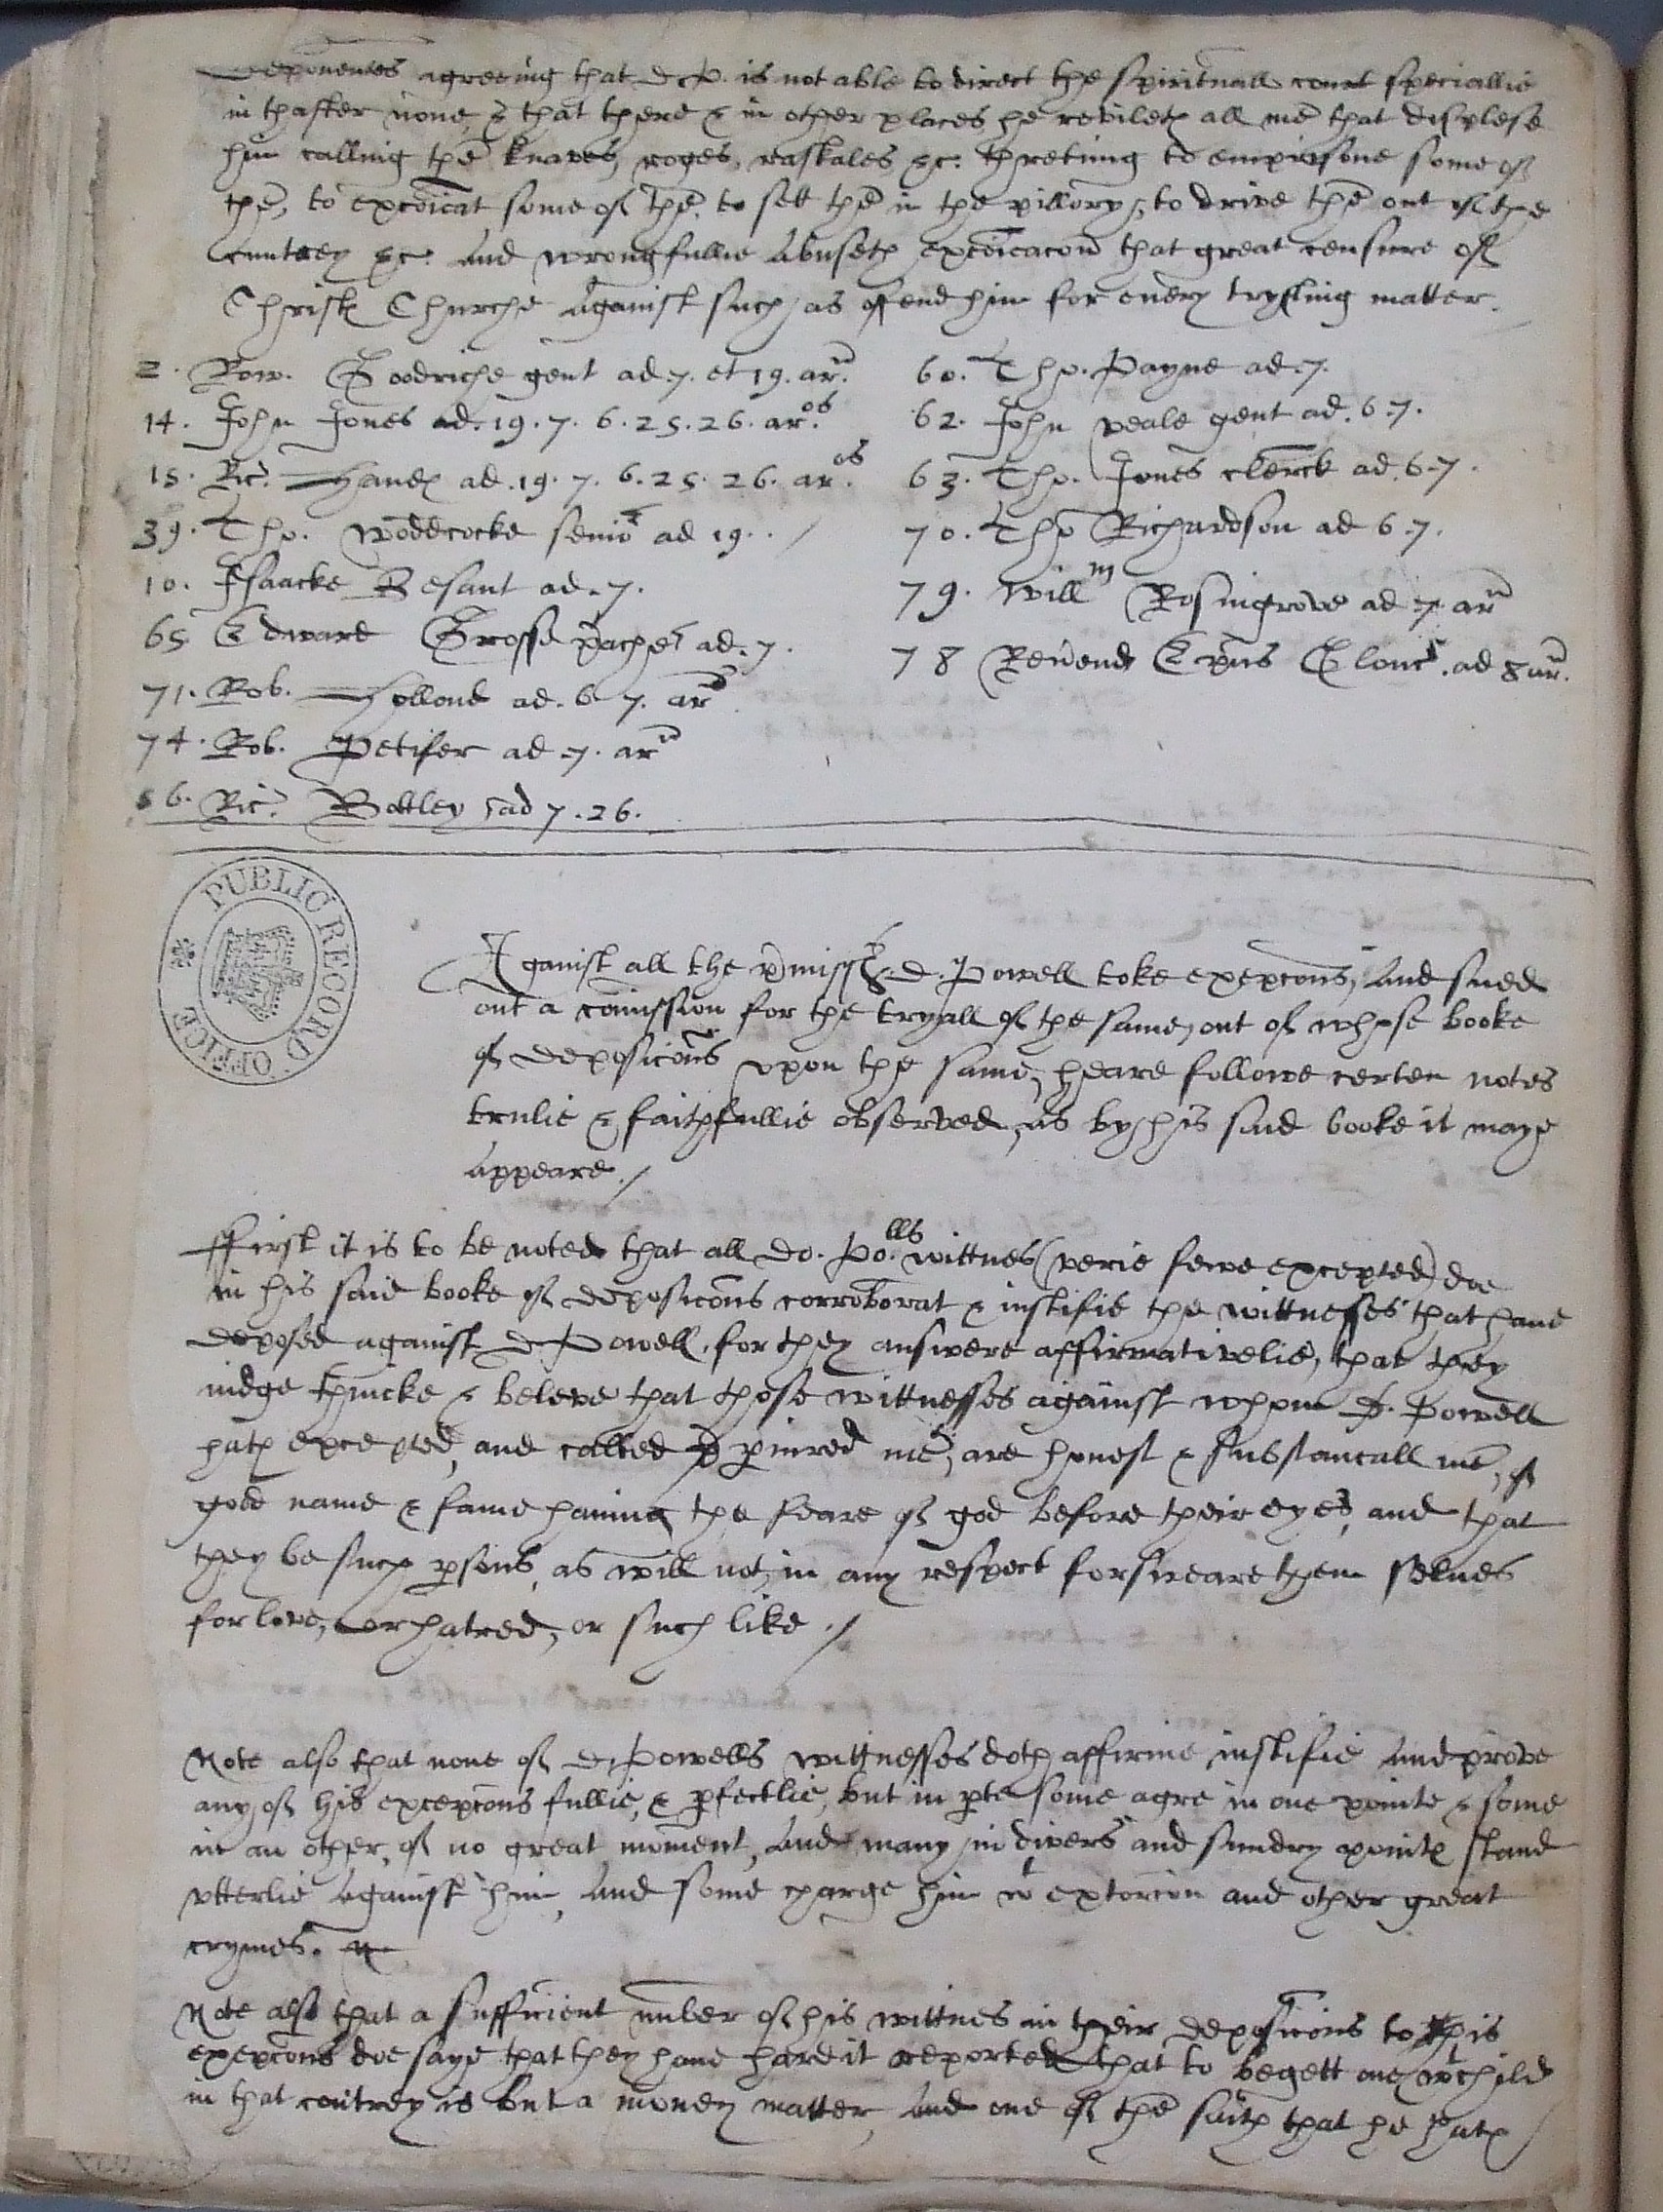 deponentes agreeing that D. P. is not able to direct the spirituall court speciallie
in thafter none, & that there & in other places he revileth all mē that displese
him calling thē knaves, roges, raskales &c. thretning to emprisone some of
thē, to excōicat some of thē, to sett thē in the pillory, to drive thē out of the
cuntrey &c. And wrongfullie Abuseth excōicacon that great censure of
Christs Churche Against such as offend him for every tryfling matter.
2. Row. Goodriche gent ad 7. et 19. ar.
14. John Jones ad. 19. 7. 6. 25. 26. ar.os
15. Ric. Hands ad. 19. 7. 6. 25. 26. ar.os
39. Tho. Woddcocke senior ad 19.
10. Isaacke Besant ad. 7.
65 Edward Grosse ad. 7.
71. Rob. Hollond ad. 6 7. ar
74. Rob. Petifer ad 7. ar
56. Ric. Bottley ad 7. 26.
60. Tho. Payne ad. 7.
62. John veale gent ad. 6. 7.
63. Tho. Jones clerck ad. 6. 7.
70. Tho Richardson ad 6. 7.
79. Willm Rosingrove ad 7. ar
78 Reverend Epus Glouc. ad 8 ar.
PUBLIC RECORD OFFICE
Against all the pmisses D. Powell toke excepcons, And sued
out a comission for the tryall of the same, out of whose booke
of deposicons upon the same, heare followe certen notes
trulie & faithfullie observed, as by his said booke it maye
Appeare./
ffirst it is to be noted that all do. Po.lls wittnes (verie fewe excepted) doe
in his said booke of deposicons corroborat & iustifie the wittnesses that have
deposed against D Powell, for they answere affirmativelie, that they
iudge thincke & beleve that those wittnesses against whom D. Powell
hath excepted, and called piured mē, are honest & substancall mē, of
good name & fame having the feare of god before their eyes, and that
they be such psons, as will not in any respect forsweare them selves
for love, or hatred, or such like ./
Note also that none of D. Powells wittnesses doth affirme iustifie And prove
any of his excepcons fullie, & pfectlie, but in pte some agre in one pointe & some
in an other, of no great moment, And many in divers and sundry points stand
vtterlie Against him, And some charge him wt extorcion and other great
crymes.
Note also that a sufficient nūber of his wittnes in their deposicions to this
excepcons doe saye that they have hard it reported that to begett one wt child
in that coūtrey is but a money matter, And one of thē saith that he hath